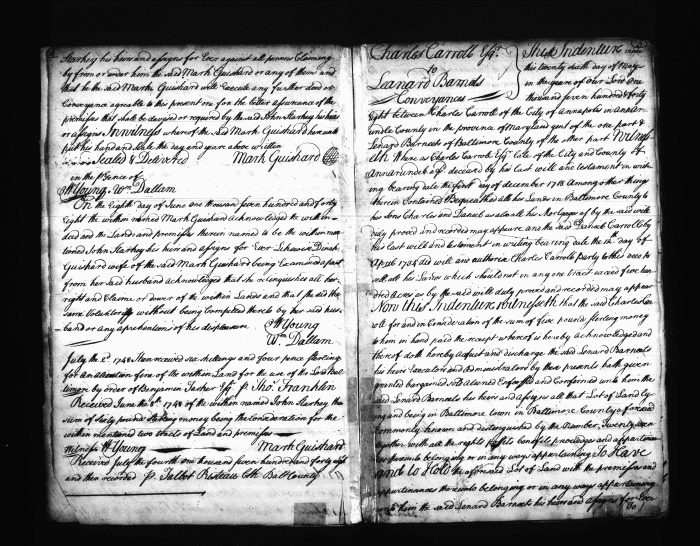 Starkey his heirs and assigns for Ever against all persons Claiming
by from or under him the said Mark Guishard or any of them and
that he the said Mark Guishard will Execute any further deed or
Conveyance agreable to this present one for the better assurance of the
premises that shall be devised or required by the said John Starkey his heirs
or assigns In witness whereof the said Mark Guishard hereunto
put his hand and seale the day and year above written
Sealed & Delivered Mark Guishard
in the psence of
W Young, Wm Dallam
On the Eighth day of June one thousand seven hundred and forty
Eight the within named Mark Guishard acknowledged the within
deed and the Lands and premises therein named to be the within men
tioned John Starkey his heirs and assigns for Ever Likewise Dinah
Guishard wife of the said Mark Guishard being Examined apart
from her said husband acknowledged that she relinquishes all her
right and Claime or dower of the within Lands and that she did the
same Voluntarily without being Compelled thereto by her said hus-
band or any apprehentions of his displeasure W Young
Wm Dallam
July the 2d 1748 then received six shillings and four pence sterling
for an alienation fine of the within Land for the use of the Lord Bal
timore by order of Benjamin Tasker Esqr p Thos Franklin
Received June the 8th 1748 of the within named John Starkey the
sum of sixty pounds sterling money being the Consideration for the
within mentioned two tracts of Land and premises
Witness W Young Mark Guishard
Received July the fourth one thousand seven hundred and forty eight
and then recorded p Talbot Risteau Clk Balt County
Charles Carroll Esqr
to
Leanard Barnets
Conveyances
This Indenture made
this twenty sixth day of May
in the year of our Lord One
thousand seven hundred & forty
Eight between Charles Carroll of the City of Annapolis in Annar
undle County in the province of Maryland gent of the one part &
Lenard Barnets of Baltimore County of the other part Witnes-
eth Whereas Charles Carroll Esqr late of the City and County of
Annarundle afd deceased by his last will and testament in writ
ing bearing date the first day of december 1718 Among other things
therein Contained Bequeathed all his Lands in Baltimore County to
his sons Charles and Daniel as also all his Mortgages as by the said will
duly proved and recorded may appear and the said Daniel Carroll by
his last will and testament in writing bearing date the 12th day of
April 1734 did will and authorize Charles Carroll party to this deed to
sell all his Lands which should not in any one tract exceed five hun
dred acres as by the said will duly proved and recorded may appear
Now this Indenture witnesseth that the said Charles Car
roll for and in Consideration of the sum of five pounds sterling money
to him in hand paid the receipt whereof is hereby acknowledged and
thereof doth hereby acquit and discharge the said Lenard Barnets
his heirs Executors and Administrators by these presents hath given
granted bargained Sold aliened Enfeofed and Confirmed unto him the
said Lenard Barnets his heirs and assigns all that Lot of Land ly-
ing and being in Baltimore town in Baltimore County aforesaid
Commonly known and distinguished by the Number Twenty seven
together with all the rights profits benefits priviledges and appurtenan
ces thereunto belonging or in any ways appurtaining To Have
and to Hold the aforesaid Lot of Land with the premises and
appurtenances thereunto belonging or in any ways appurtaining
unto him the said Lenard Barnets his heirs and assigns for Ever